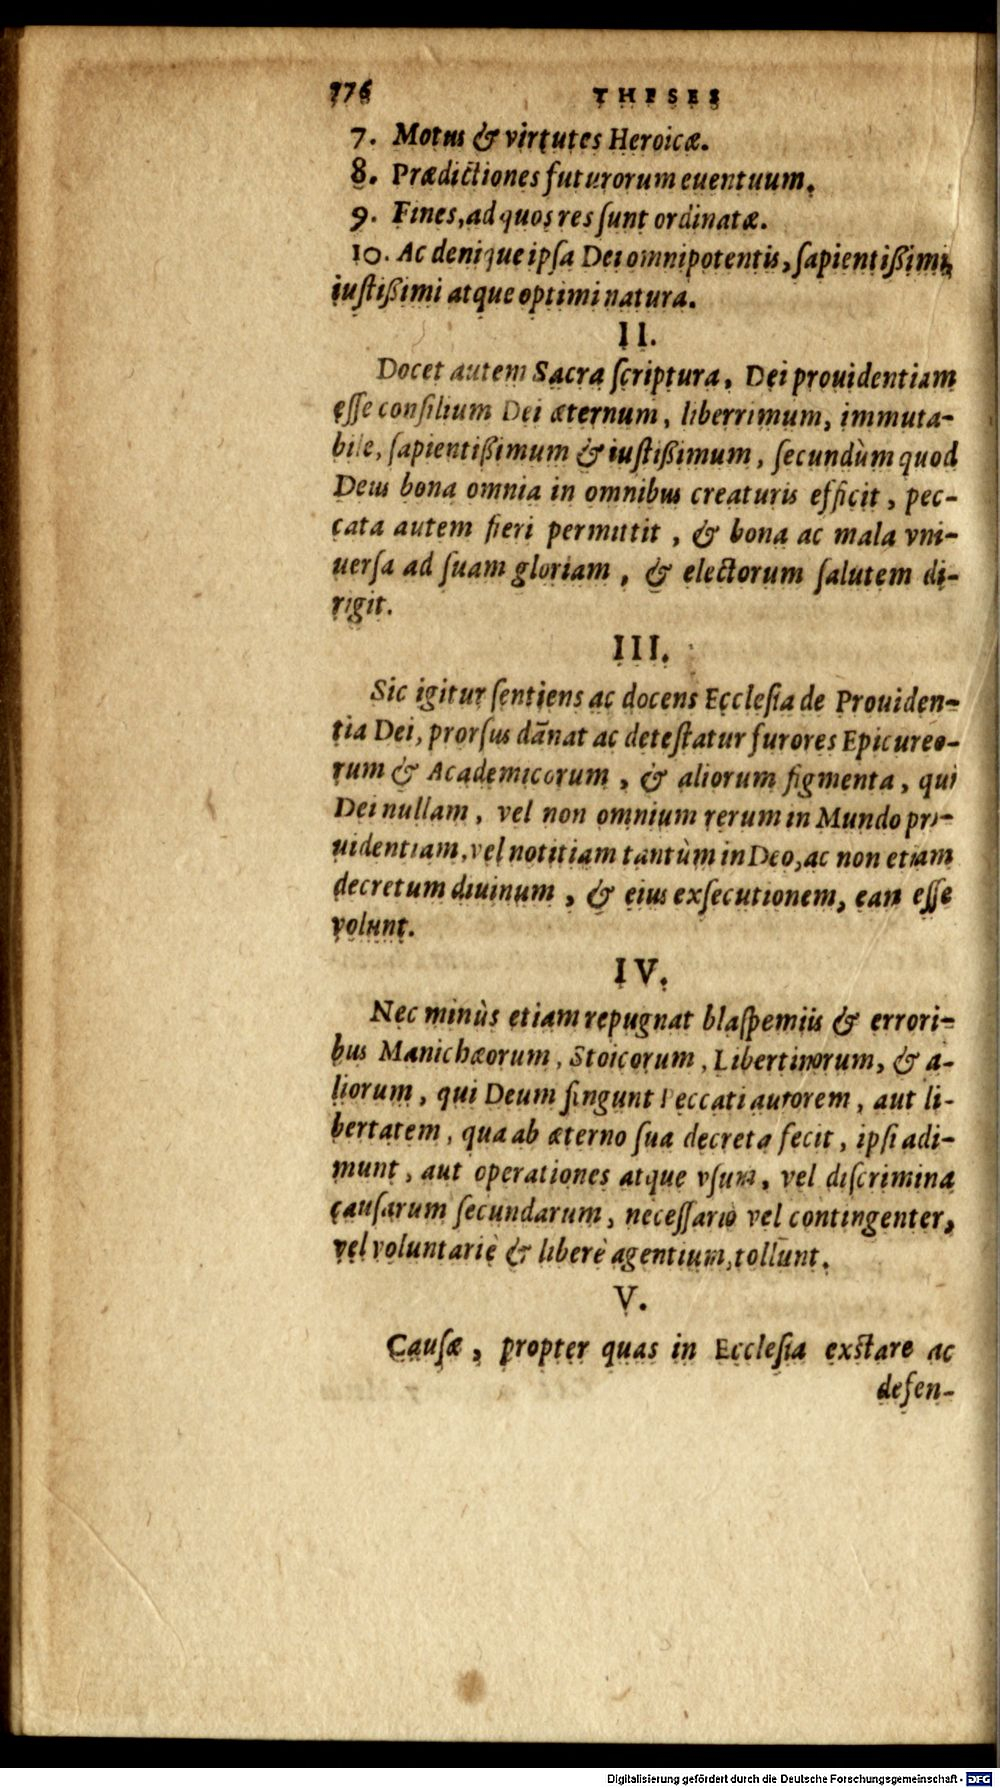 776 THESES
7. Motus & virtutes Heroicæ.
8. Prædictiones futurorum euentuum.
9. Fines, ad quos res ſunt ordinatæ.
10. Ac denique ipſa Dei omnipotentis, ſapientißimi,
iuſtißimi atque optimi natura.
II.
Docet autem Sacra ſcriptura, Dei prouidentiam
eſſe conſilium Dei æternum, liberrimum, immuta-
bile, ſapientißimum & iuſtißimum, ſecundùm quod
Deus bona omnia in omnibus creaturis efficit, pec-
cata autem fieri permittit, & bona ac mala vni-
uerſa ad ſuam gloriam, & electorum ſalutem di-
rigit.
III.
Sic igitur ſentiens ac docens Eccleſia de Prouiden-
tia Dei, prorſus dãnat ac deteſtatur furores Epicureo-
rum & Academicorum, & aliorum figmenta, qui
Dei nullam, vel non omnium rerum in Mundo pro-
uidentiam, vel notitiam tantùm in Deo, ac non etiam
decretum diuinum, & eius exſecutionem, ean eſſe
volunt.
IV.
Nec minùs etiam repugnat blaſpemiis & errori-
bus Manichæorum, Stoicorum, Libertinorum, & a-
liorum, qui Deum fingunt Peccati autorem, aut li-
bertatem, qua ab æterno ſua decreta fecit, ipſi adi-
munt, aut operationes atque vſum, vel diſcrimina
cauſarum ſecundarum, neceſſariò vel contingenter,
vel voluntariè & liberè agentium, tollunt.
V.
Cauſæ, propter quas in Eccleſia exſtare ac
defen-
Digitalisierung gefördert durch die Deutsche Forschungsgemeinschaft - DFG